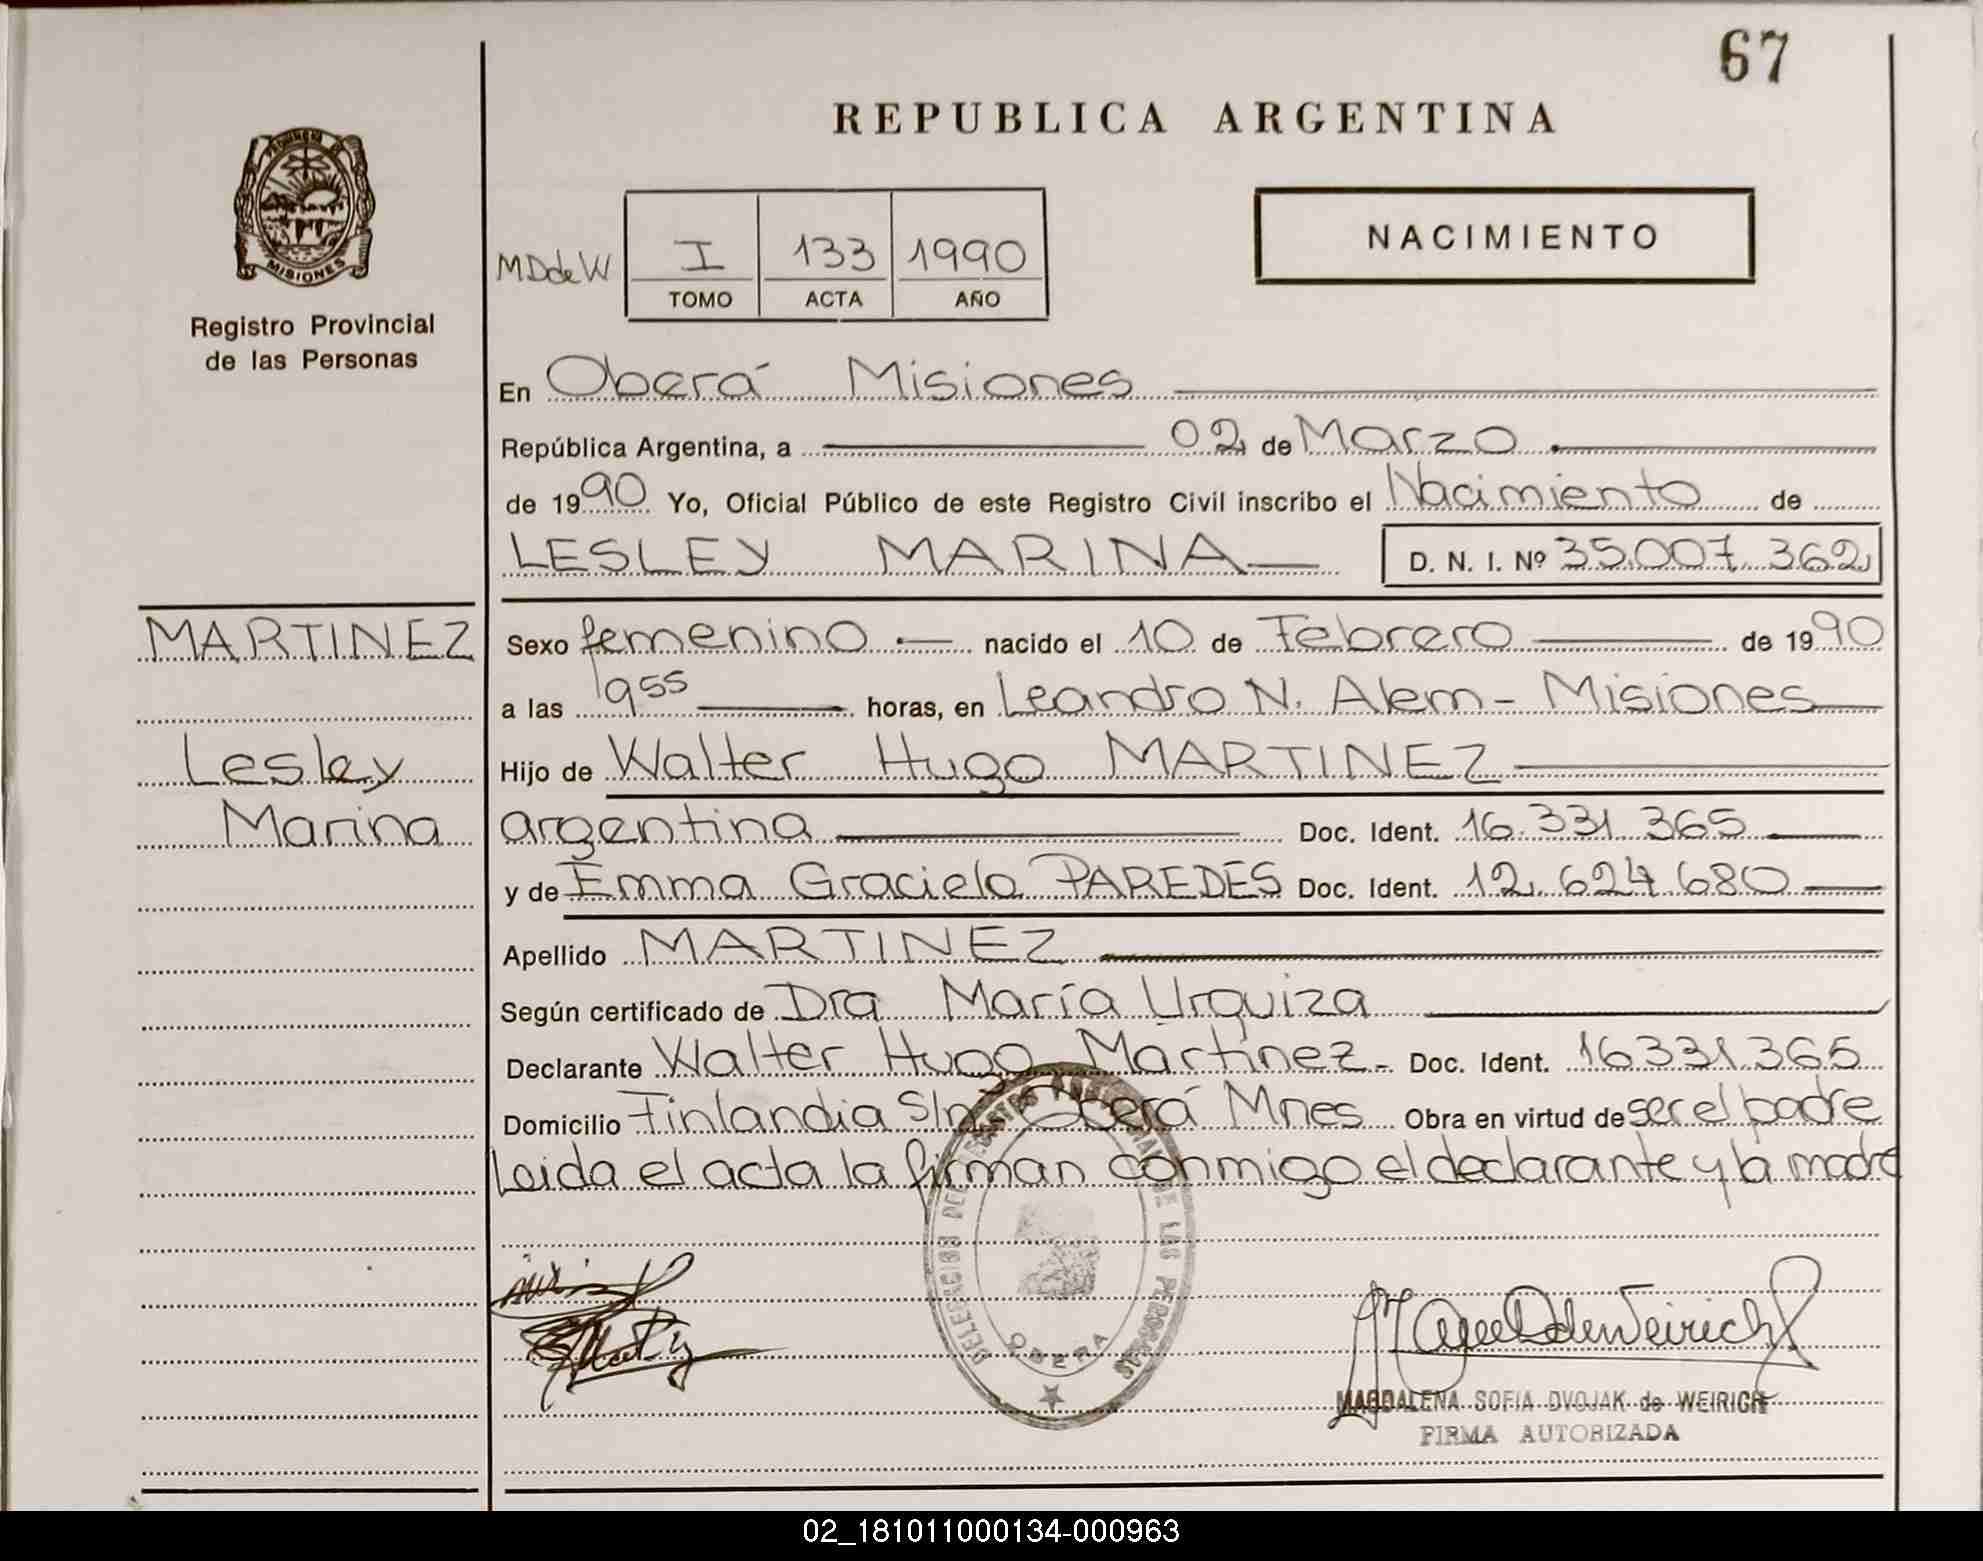 67
REPUBLICA ARGENTINA
PROVINCIA DE
MISIONES
Registro Provincial
de las Personas
MDdeW
I 133 1990
TOMO ACTA AÑO
NACIMIENTO
En Oberá Misiones
República Argentina, a 02 de Marzo
de 1990 Yo, Oficial Público de este Registro Civil inscribo el Nacimiento de
LESLEY MARINA D. N. I. Nº 35.007.362
MARTINEZ
Lesley
Marina
Sexo femenino nacido el 10 de Febrero de 1990
a las 1955 horas, en Leandro N. Alem - Misiones
Hijo de Walter Hugo MARTINEZ
argentina Doc. Ident. 16.331.365
y de Emma Graciela PAREDES Doc. Ident. 12.624.680
Apellido MARTINEZ
Según certificado de Dra María Urquiza
Declarante Walter Hugo Martinez - Doc. Ident. 16331.365
Domicilio Finlandia S/nº Oberá Mnes Obra en virtud de ser el padre
Leida el acta la firman conmigo el declarante y la madre
DELEGACION DEL REGISTRO PROVINCIAL DE LAS PERSONAS
OBERA
MAGDALENA SOFIA DVOJAK de WEIRICH
FIRMA AUTORIZADA
02_181011000134-000963